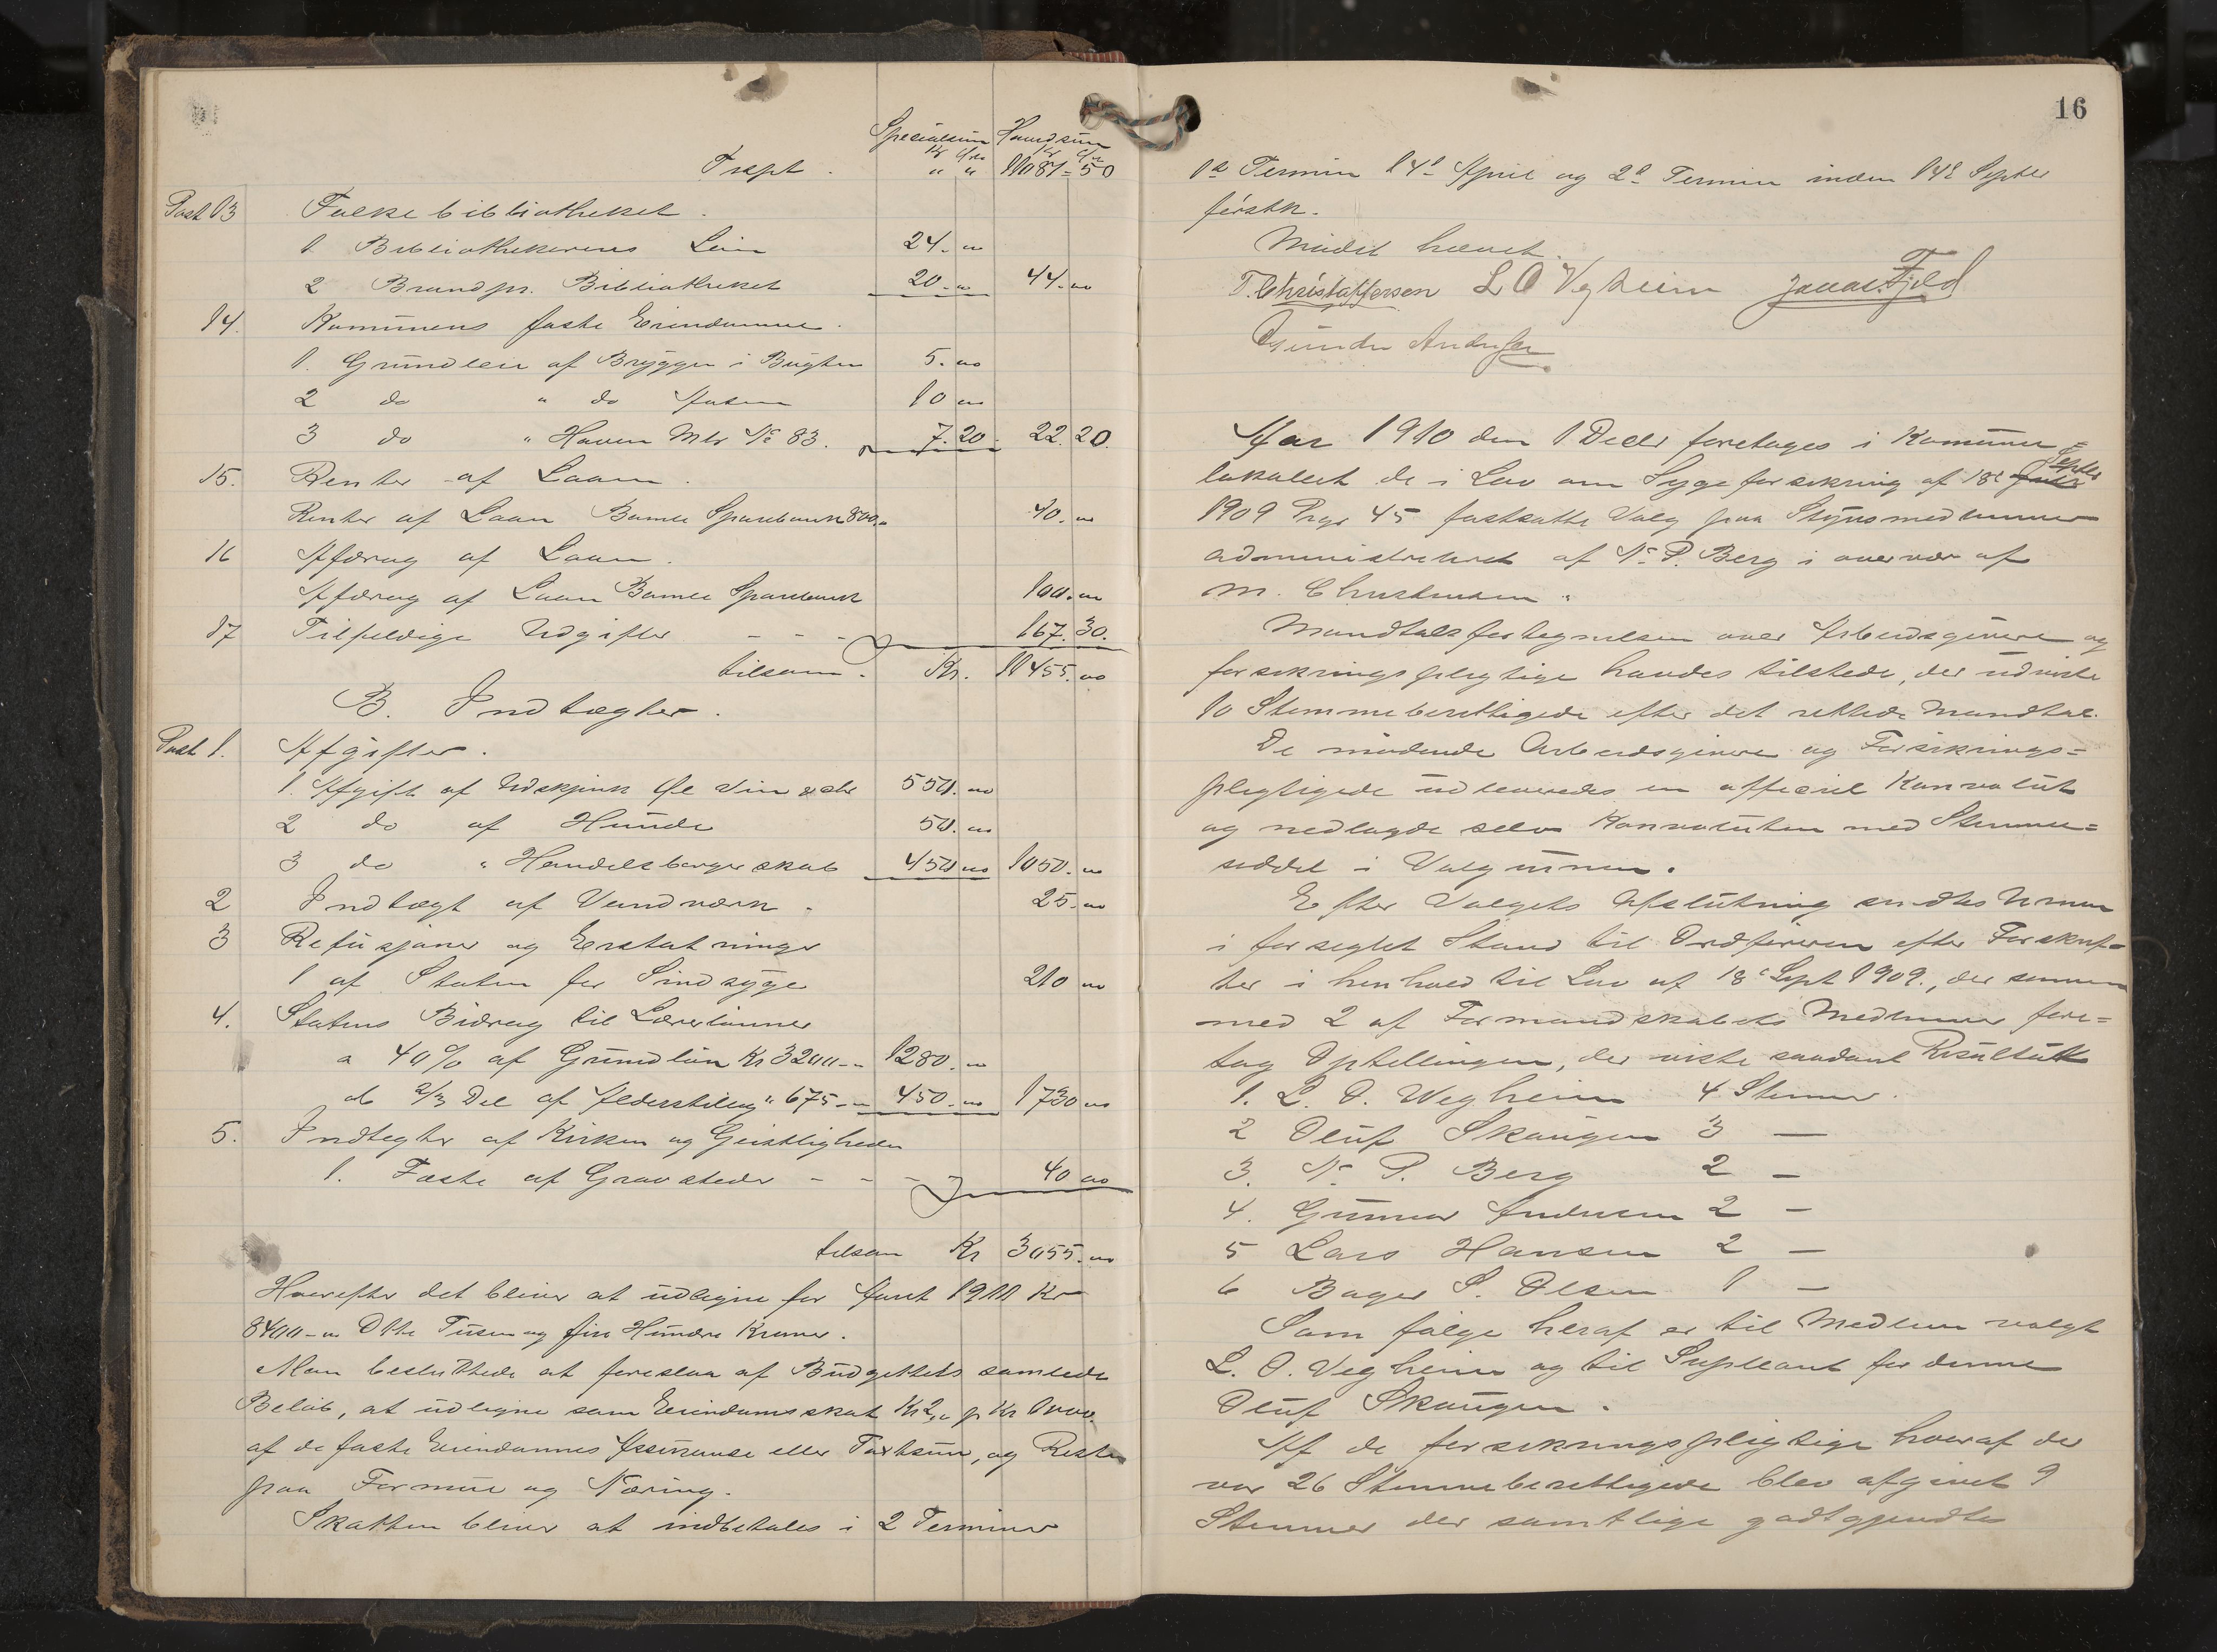 Specialsum Hovedsum
Kr Øre Kr Øre
Trspt. " " 11081-50
Post 13 Folkebibliotheket.
1 Bibliothekerens Løn 24.00
2 Brandpr. Bibliotheket 20.00 44.00
14. Komunens faste Eiendomme.
1. Grundleie af Bryggen i Bugten 5.00
2 do " do 10 00
3 do " Haven Mtr № 83. 7.20 22.20.
15. Renter af Laan.
Renter af Laan Bamble Sparebank 800.00 40.00
16 Afdrag af Laan.
Afdrag af Laan Bamble Sparebank 100.00
17 Tilfeldige Udgifter - - - 167.30.
tilsam. Kr. 11455.00
B. Indtægter.
Post 1. Afgifter.
1. Afgift af Udskjenk Øl Vin 550.00
2 do af Hunde 50.00
3 do " Handelsborgerskab 450 00 1050.00
2 Indtægt af Vandværk. 25.00
3 Refusjoner og Erstatninger
1 af Staten for Sindsyge 210 00
4. Statens Bidrag til Lærerlønner
a 40% af Grundløn Kr 3200-- 1280.00
b 2/3 Del af Alderstillæg " 675-- 450.00 1730 00
5. Indtegter af Kirken og Geistligheden
1. Fæste af Gravsteder - - - - 40 00
tilsam Kr 3055.00
Hvorefter det bliver at udligne for Aaret 1911 Kr
8400-00 Otte Tusen og fire Hundre Kroner.
Man besluttede at foreslaa af Budgettets samlede
Beløb, at udligne som Eiendomsskat Kr 2,00 pr Kr 1000.
af de faste Eiendommes Assuranse eller Taxtsum, og Resten
paa Formue og Næring.
Skatten bliver at indbetales i 2 Terminer
16
1ste Termin 14de April og 2den Termin inden 14de Septbr
førstk.
Mødet hævet.
T. Christoffersen L O Vegheim Jonas Fjeld
Gunder Andersen
Aar 1910 den 1 Decbr foretoges i Komune=
lokalet de i Lov om Sygeforsikring af 18de Septbr
1909 Prgr 45 fastsatte Valg paa Styresmedlemmer
administreret af N. P. Berg i overvær af
M. Christensen.
Mandtalsfortegnelsen over Arbeidsgivere og
forsikringspligtige havdes tilstede, der udviste
10 Stemmeberettigede efter det rettede Mandtal.
De mødende Arbeidsgivere og Forsikrings=
pligtigede udleveredes en officiel Konvolut
og nedlagde selv Konvoluten med Stemme=
seddel i Valgurnen.
Efter Valgets Afslutning sendtes Urnen
i forseglet Stand til Ordføreren efter Forskrif=
ter i henhold til Lov af 18de Sept 1909., der sammen
med 2 af Formandskabets Medlemmer fore=
tog Optellingen, der viste saadant Resultat
1. L. O. Wegheim 4 Stemmer.
2 Oluf Skaugen 3 —
3. N. P. Berg 2 —
4. Gunnar Andersen 2 —
5 Lars Hansen 2 —
6 Bager S. Olsen 1 —
Som følge heraf er til Medlem valgt
L. O. Vegheim og til Supleant for denne
Oluf Skaugen.
Af de forsikringspligtige hvoraf der
var 26 Stemmeberettigede blev afgivet 9
Stemmer der samtlige godtgjendtes